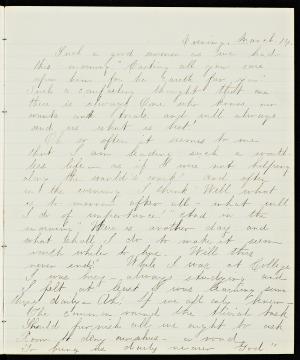 Evening, March 14.
Such a good sermon as we had
this morning "Casting all your care
upon him for he careth for you."
Such a comforting thought that
there is always One who knows our
wants and trials and will always
send us what is best.
Oh so often it seems to me
that I am leading such a worth
less life - as if I were not helping
along the world's work. And often
in the evening I think "Well, what
is to-morrow after all - what will
I do of importance" And in the
morning "Here is another day and
what shall I do to make it seem
worth while to live. Will this
ever end" While I was at College
I was busy - always studying and
I felt at least I was learning some
thing daily - Ah! If we all only knew -
The common round the trivial task
Should furnish all we ought to ask
Room to deny ourselves - a road
To bring us daily nearer God"